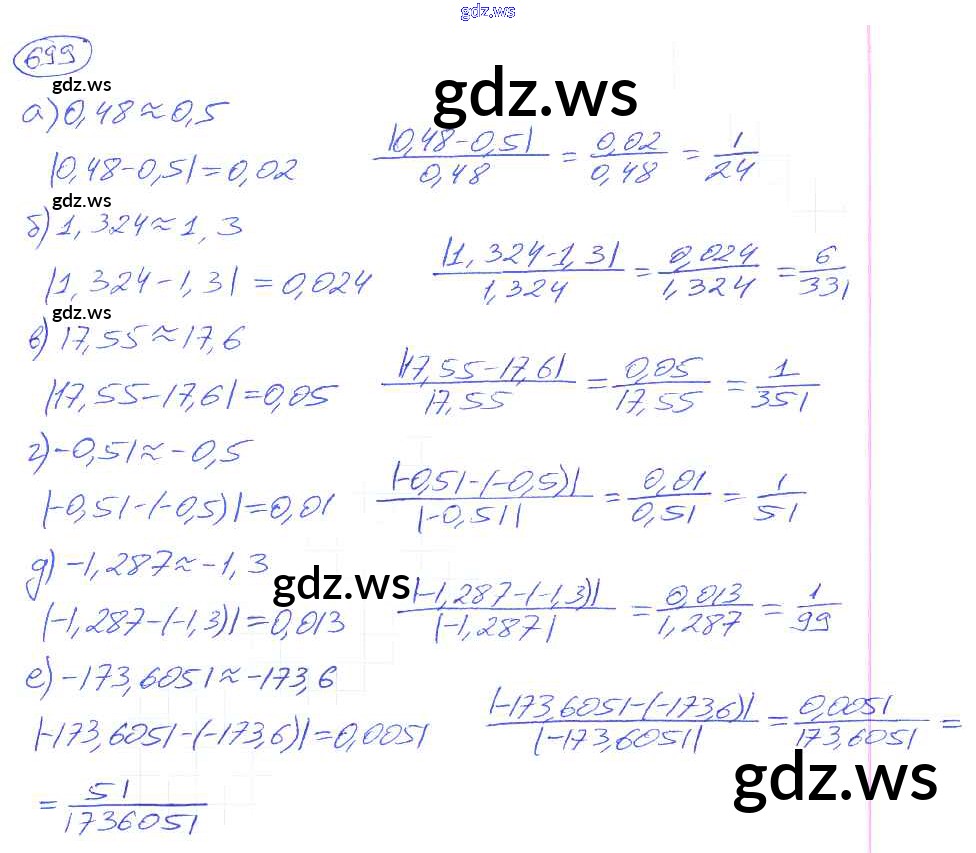 gdz.ws
699
gdz.ws
gdz.ws
а) 0,48 ≈ 0,5
|0,48-0,5| = 0,02 |0,48-0,5| / 0,48 = 0,02 / 0,48 = 1/24
gdz.ws
б) 1,324 ≈ 1,3
|1,324-1,3| = 0,024 |1,324-1,3| / 1,324 = 0,024 / 1,324 = 6/331
gdz.ws
в) 17,55 ≈ 17,6
|17,55-17,6| = 0,05 |17,55-17,6| / 17,55 = 0,05 / 17,55 = 1/351
г) -0,51 ≈ -0,5
|-0,51-(-0,5)| = 0,01 |-0,51-(-0,5)| / |-0,51| = 0,01 / 0,51 = 1/51
д) -1,287 ≈ -1,3
gdz.ws
|-1,287-(-1,3)| = 0,013 |-1,287-(-1,3)| / |-1,287| = 0,013 / 1,287 = 1/99
е) -173,6051 ≈ -173,6
|-173,6051-(-173,6)| = 0,0051 |-173,6051-(-173,6)| / |-173,6051| = 0,0051 / 173,6051 =
gdz.ws
= 51 / 1736051